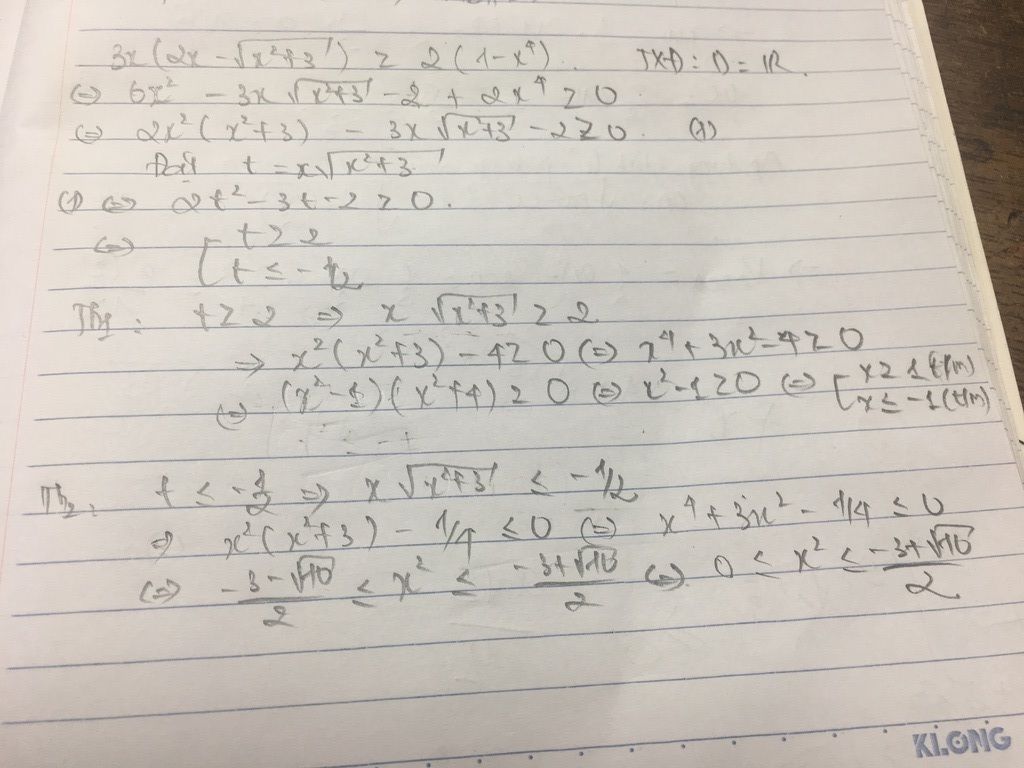 3x(2x - √(x²+3)) ≥ 2(1-x⁴). TXĐ: D = ℝ.
⇔ 6x² - 3x√(x²+3) - 2 + 2x⁴ ≥ 0
⇔ 2x²(x²+3) - 3x√(x²+3) - 2 ≥ 0. (1)
Đặt t = x√(x²+3)
(1) ⇔ 2t² - 3t - 2 ≥ 0.
⇔ [ t ≥ 2
t ≤ -1/2
Th1: t ≥ 2 ⇒ x√(x²+3) ≥ 2
⇒ x²(x²+3) - 4 ≥ 0 ⇔ x⁴ + 3x² - 4 ≥ 0
⇔ (x²-1)(x²+4) ≥ 0 ⇔ x²-1 ≥ 0 ⇔ [ x ≥ 1 (t/m)
x ≤ -1 (t/m)
Th2: t ≤ -1/2 ⇒ x√(x²+3) ≤ -1/2
⇒ x²(x²+3) - 1/4 ≤ 0 ⇔ x⁴ + 3x² - 1/4 ≤ 0
⇔ (-3-√10)/2 ≤ x² ≤ (-3+√10)/2 ⇔ 0 ≤ x² ≤ (-3+√10)/2
KLONG